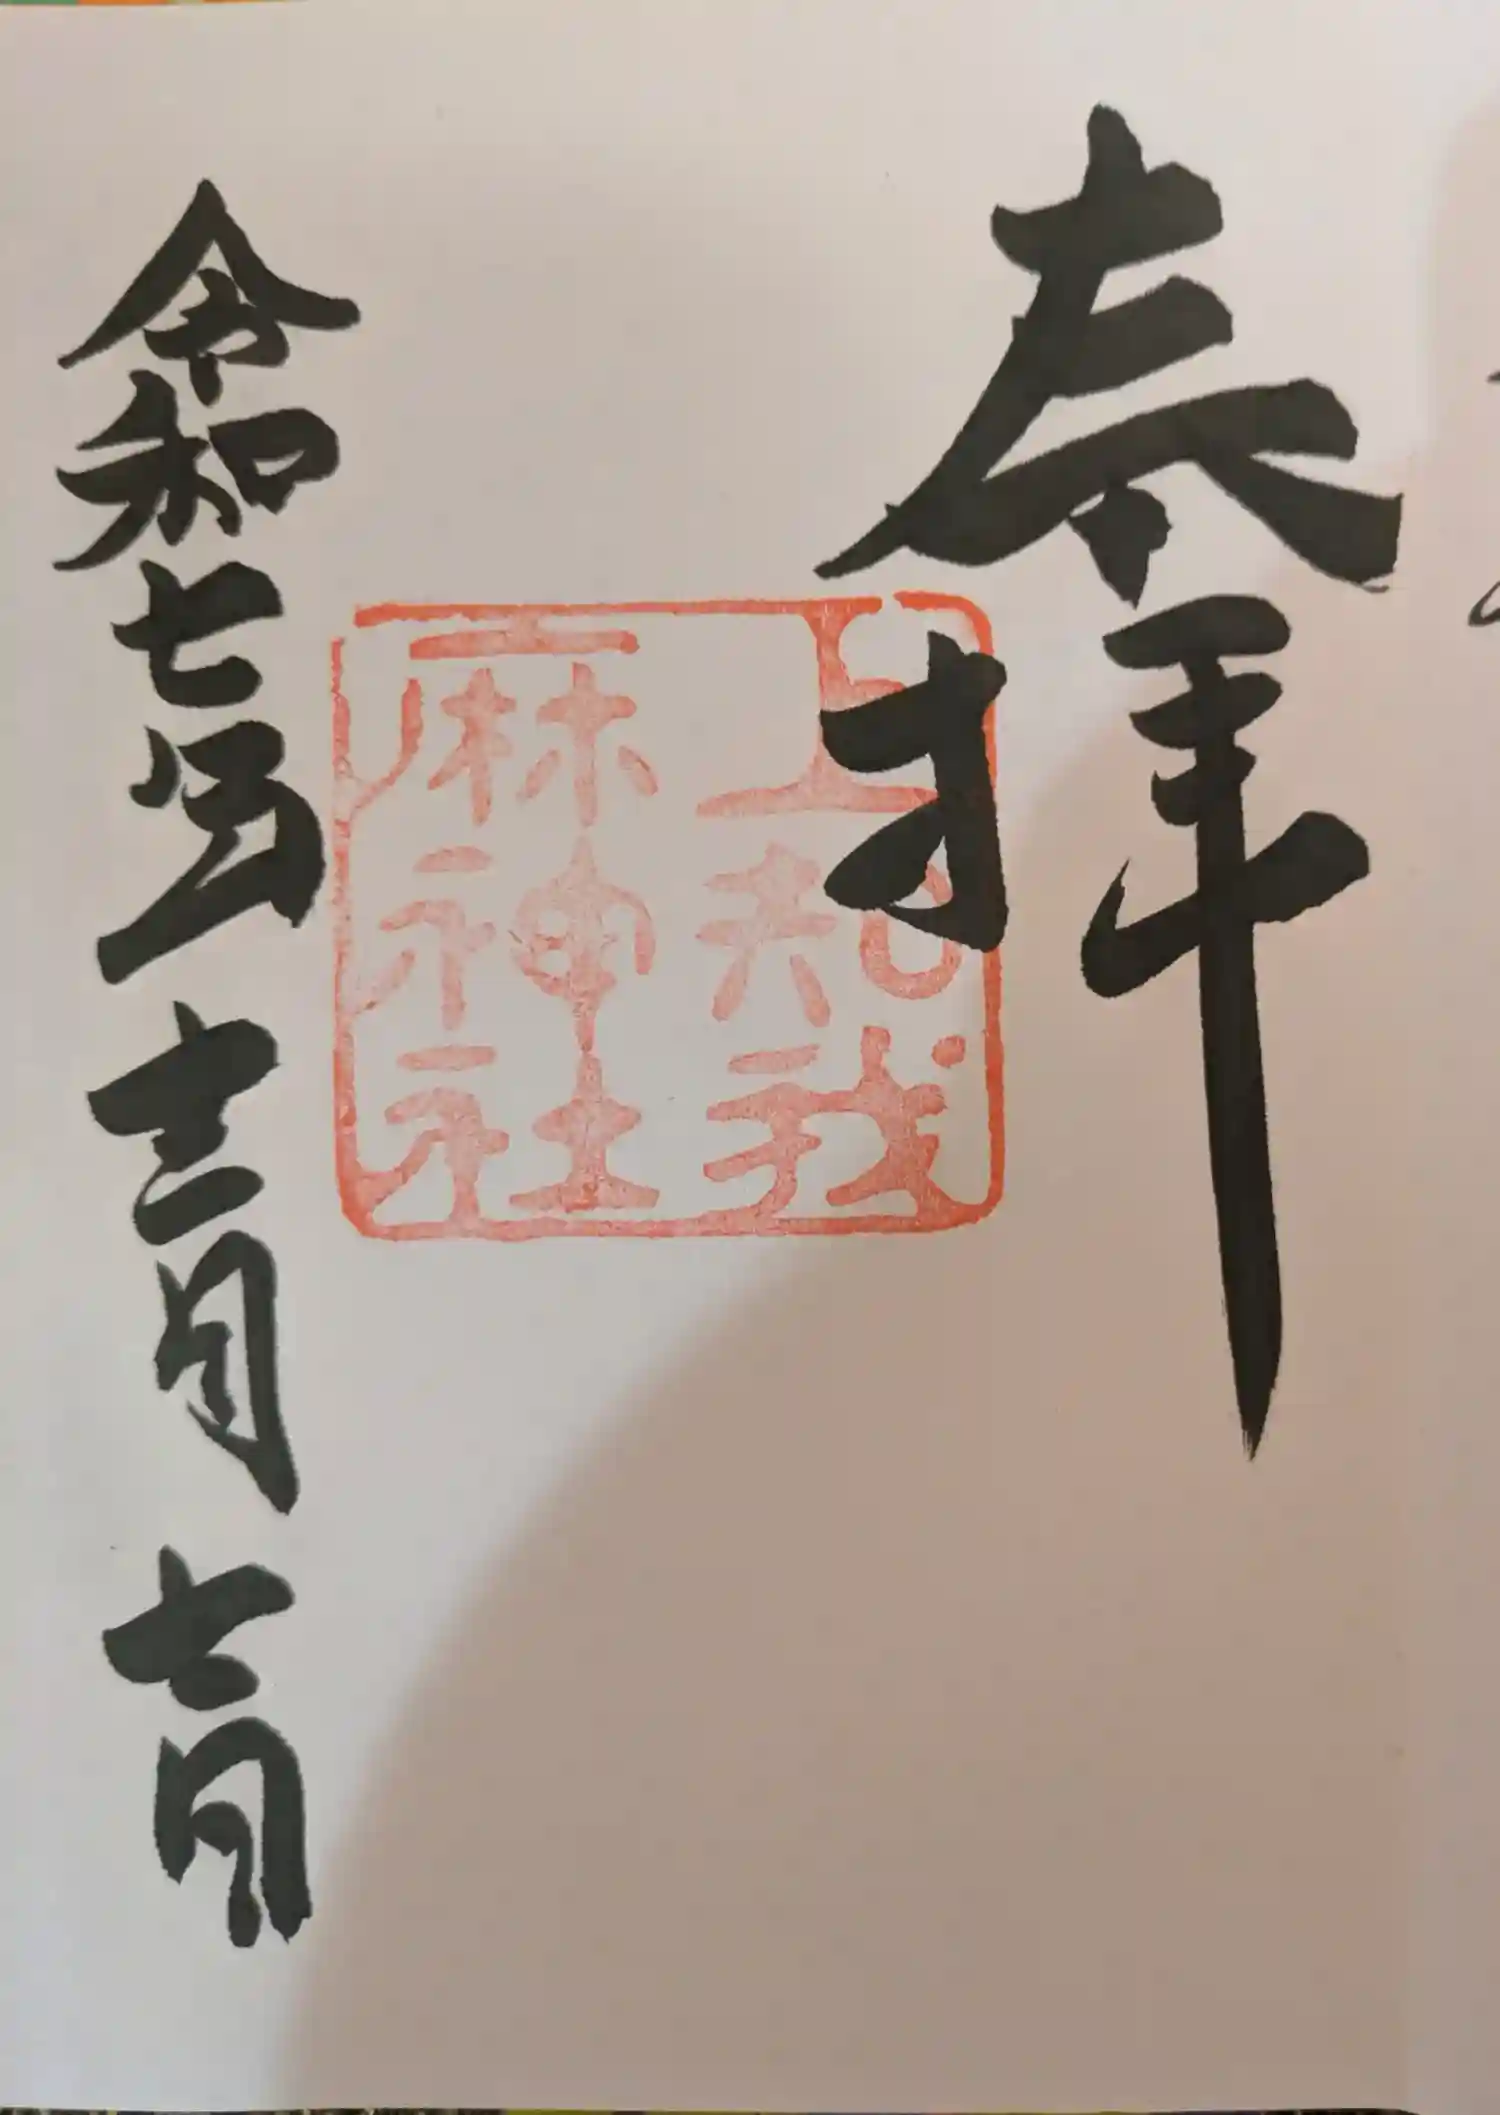 奉拝
上知我
麻神社
令和七年十二月七日